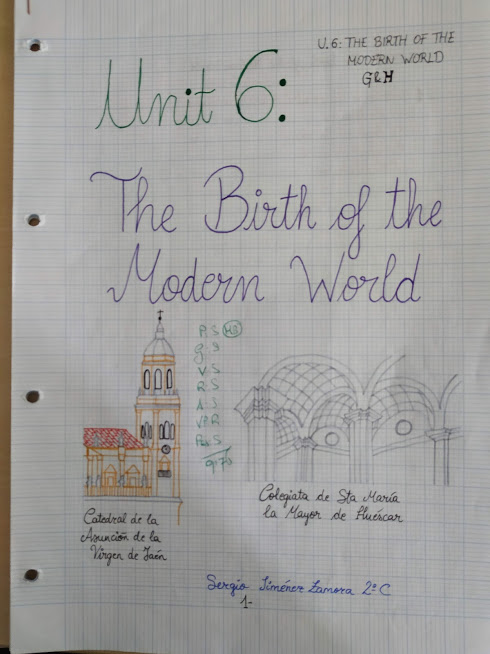 U.6: THE BIRTH OF THE
MODERN WORLD
G&H
Unit 6:
The Birth of the
Modern World
P.S MB
g.S
V.S
R.S
A.S
Catedral de la
Asunción de la
Virgen de Jaén
Colegiata de Sta María
la Mayor de Huéscar
Sergio Jiménez Zamora 2º C
1-